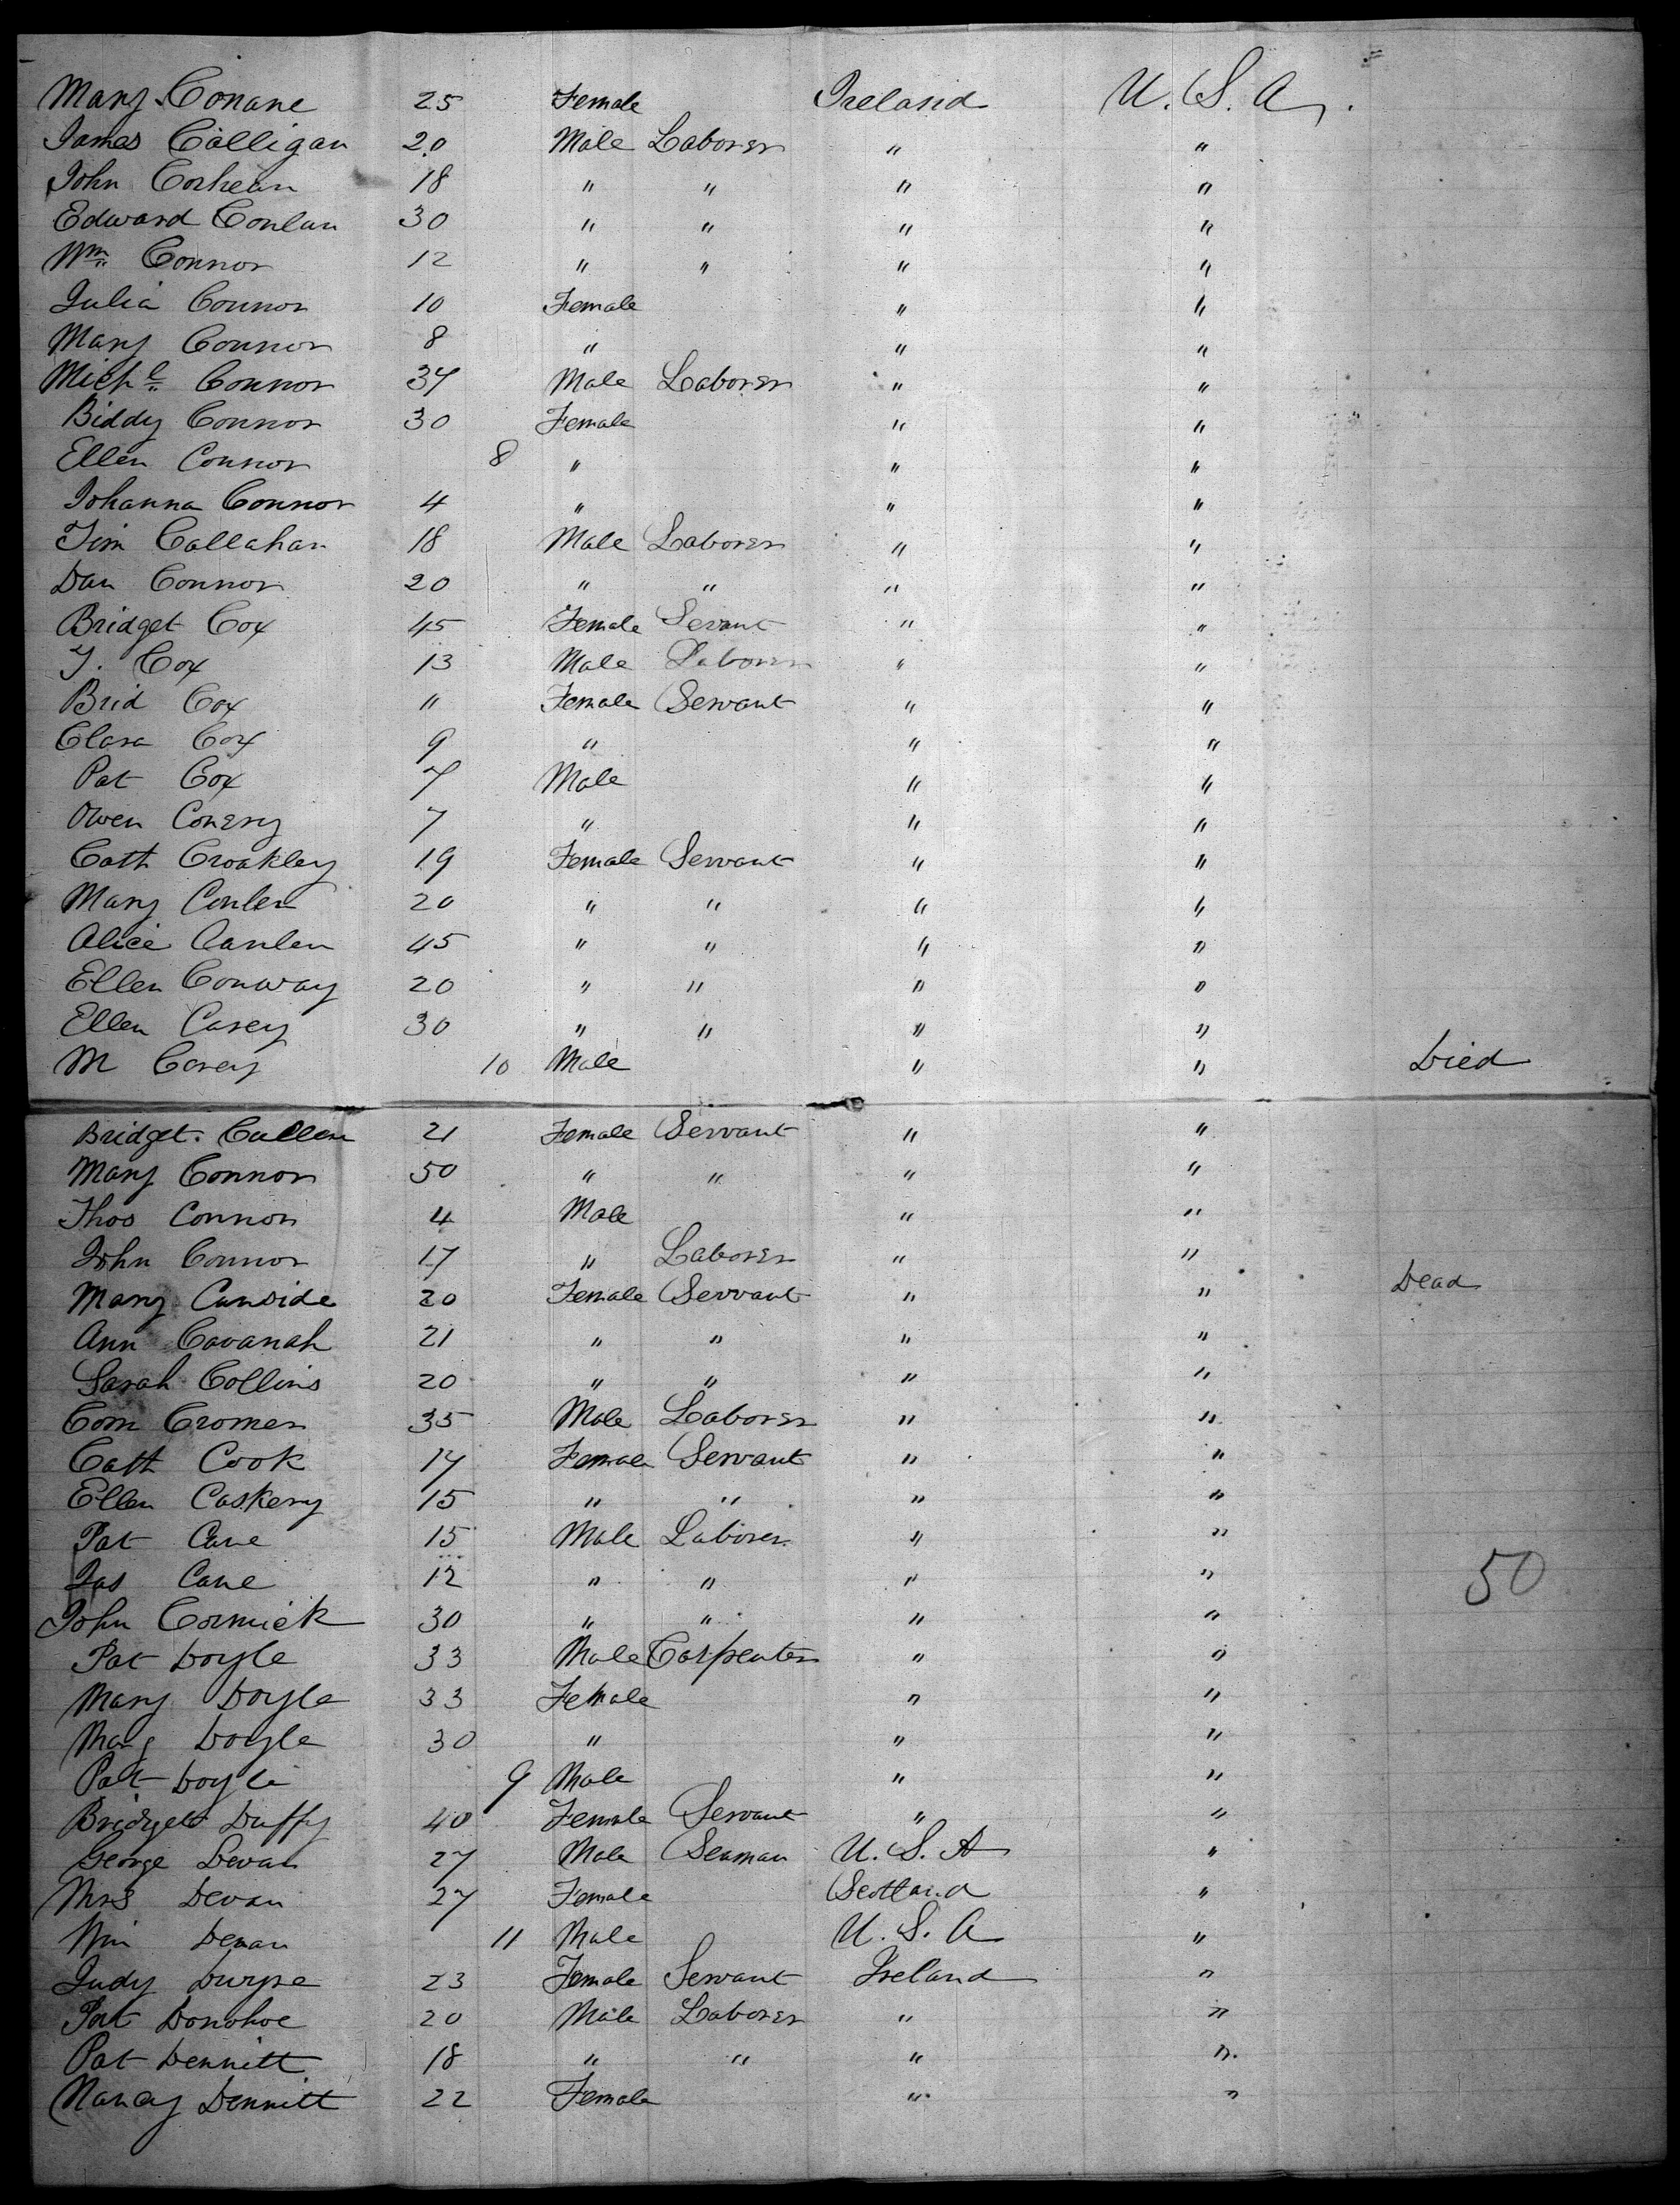 Mary Conane 25 Female Ireland U. S. A.
James Calligan 20 Male Laborer " "
John Corhean 18 " " " "
Edward Conlan 30 " " " "
Wm Connor 12 " " " "
Julia Connor 10 Female " "
Mary Connor 8 " " "
Michl Connor 34 Male Laborer " "
Biddy Connor 30 Female " "
Ellen Connor 8 " " "
Johanna Connor 4 " " "
Tim Callahan 18 Male Laborer " "
Dan Connor 20 " " " "
Bridget Cox 45 Female Sevant " "
J. Cox 13 Male Laborer " "
Brid Cox " Female Servant " "
Clara Cox 9 " " "
Pat Cox 7 Male " "
Owen Conery 7 " " "
Cath Croakley 19 Female Servant " "
Mary Conlen 20 " " " "
Alice Canlen 45 " " " "
Ellen Conway 20 " " " "
Ellen Casey 30 " " " "
M Casey 10 Male " " Died
Bridget Cullen 21 Female Servant " "
Mary Connor 50 " " " "
Thos Connor 4 Male " "
John Connor 17 " Laborer " "
Mary Canside 20 Female Servant " " Dead
Ann Cavanah 21 " " " "
Sarah Collins 20 " " " "
Corn Cromer 35 Male Laborer " "
Cath Cook 17 Female Servant " "
Ellen Caskery 15 " " " "
Pat Cane 15 Male Laborer " "
Jas Cane 12 " " " " 50
John Cormick 30 " " " "
Pat Doyle 33 Male Carpenter " "
Mary Doyle 33 Female " "
Marg Doyle 30 " " "
Pat Doyle 9 Male " "
Bridget Duffy 40 Female Servant " "
George Devan 27 Male Seaman U. S. A "
Mrs Devan 27 Female Scotland "
Wm Devan 11 Male U. S. A "
Judy Dwyre 23 Female Servant Ireland "
Pat Donohoe 20 Male Laborer " "
Pat Dennitt 18 " " " "
Nancy Dennitt 22 Female " "